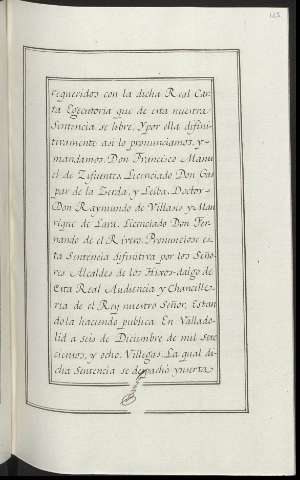 requeridos con la dicha Real Car-
ta Egecutoria que de esta nuestra
Sentencia se lobre, Y por ella difini-
tivamente asi lo pronunciamos, y
mandamos. Don Francisco Manu-
el de Zifuentes. Licenciado Don Gas-
par de la Zerda, y Leiba. Doctor
Don Raymundo de Villaso y Man-
rique de Lara. Licenciado Don Fer-
nando de el Rivero. Pronunciose es-
ta Sentencia difinitiva por los Seño-
res Alcaldes de los Hixos-dalgo de
Esta Real Audiencia y Chancille-
ria de el Rey nuestro Señor, Estan-
dola haciendo publica En Vallado-
lid a seis de Diciembre de mil sete-
cientos, y ocho. Villegas. La qual di-
cha Sentencia se despachó ynserta